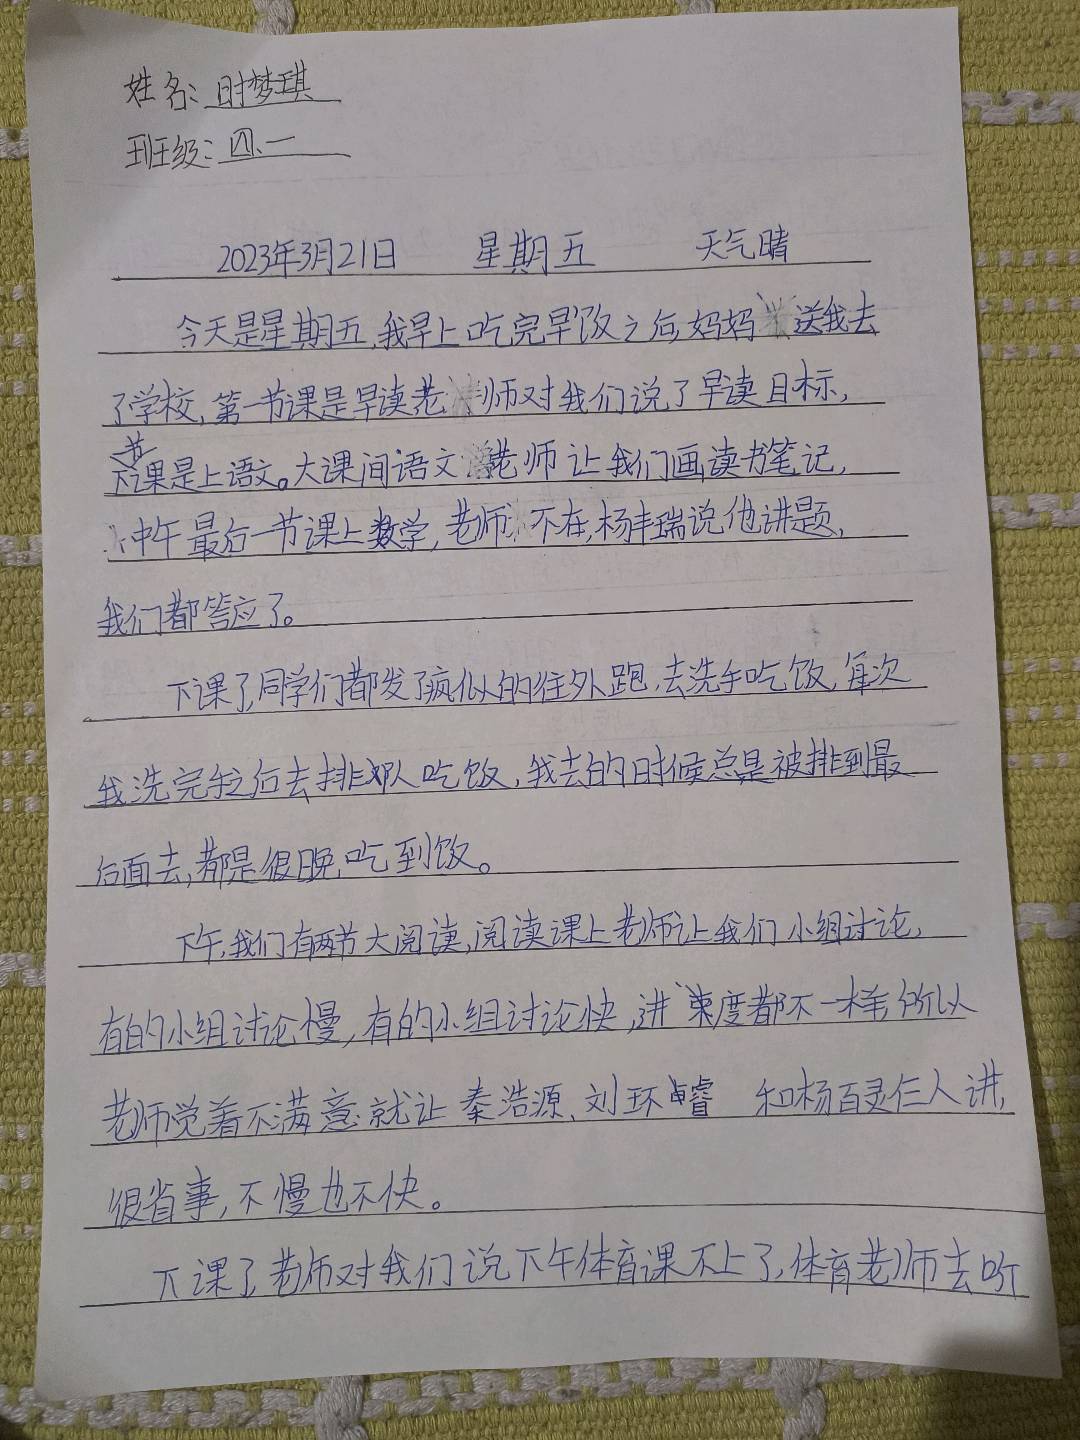 姓名:时梦琪
班级:四.一
2023年3月21日 星期五 天气晴
今天是星期五,我早上吃完早饭之后,妈妈送我去
了学校,第一节课是早读,老师对我们说了早读目标,
下节课是上语文。大课间语文老师让我们画读书笔记,
中午最后一节课上数学,老师不在,杨丰瑞说他讲题,
我们都答应了。
下课了,同学们都发了疯似的往外跑,去洗手吃饭,每次
我洗完手之后去排队吃饭,我去的时候总是被排到最
后面去,都是很晚吃到饭。
下午,我们有两节大阅读,阅读课上老师让我们小组讨论,
有的小组讨论慢,有的小组讨论快,进束度都不一样,所以
老师觉着不满意,就让秦浩源、刘环睿和杨百灵仨人讲,
很省事,不慢也不快。
下课了,老师对我们说下午体育课不上了,体育老师去听